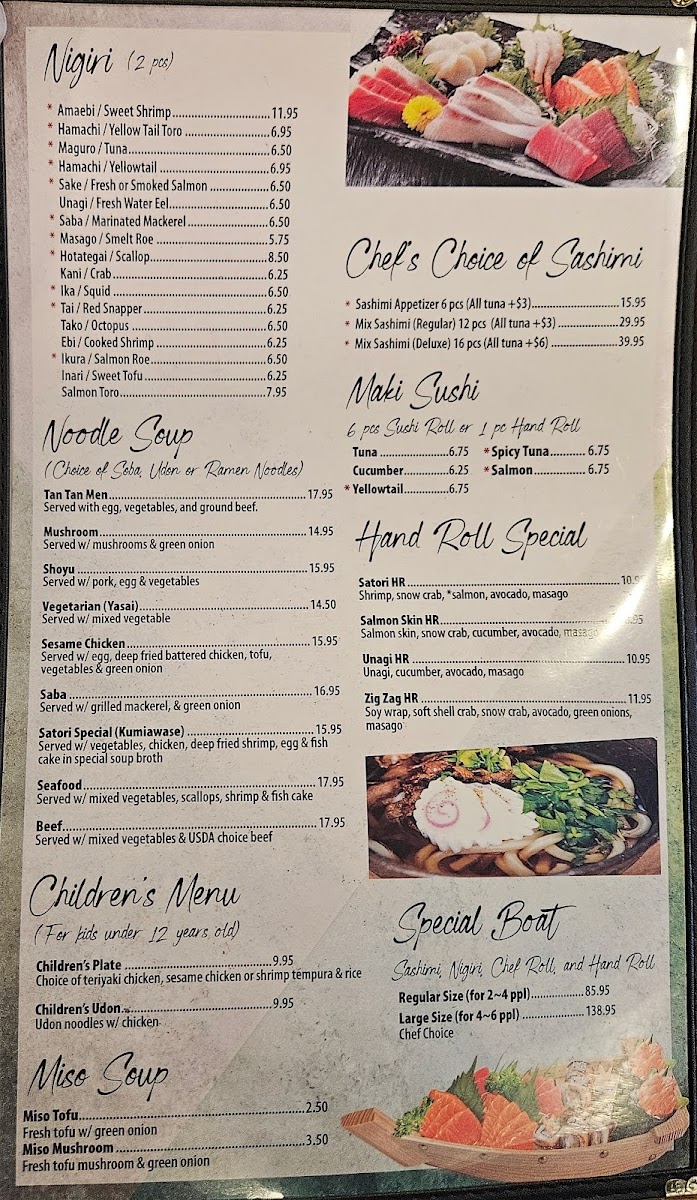 Nigiri (2 pcs)
* Amaebi / Sweet Shrimp..........11.95
* Hamachi / Yellow Tail Toro..........6.95
* Maguro / Tuna..........6.50
* Hamachi / Yellowtail..........6.95
* Sake / Fresh or Smoked Salmon..........6.50
Unagi / Fresh Water Eel..........6.50
* Saba / Marinated Mackerel..........6.50
* Masago / Smelt Roe..........5.75
* Hotategai / Scallop..........8.50
Kani / Crab..........6.25
* Ika / Squid..........6.50
* Tai / Red Snapper..........6.25
Tako / Octopus..........6.50
Ebi / Cooked Shrimp..........6.25
* Ikura / Salmon Roe..........6.50
Inari / Sweet Tofu..........6.25
Salmon Toro..........7.95
Noodle Soup
(Choice of Soba, Udon or Ramen Noodles)
Tan Tan Men..........17.95
Served with egg, vegetables, and ground beef.
Mushroom..........14.95
Served w/ mushrooms & green onion
Shoyu..........15.95
Served w/ pork, egg & vegetables
Vegetarian (Yasai)..........14.50
Served w/ mixed vegetable
Sesame Chicken..........15.95
Served w/ egg, deep fried battered chicken, tofu,
vegetables & green onion
Saba..........16.95
Served w/ grilled mackerel, & green onion
Satori Special (Kumiawase)..........15.95
Served w/ vegetables, chicken, deep fried shrimp, egg & fish
cake in special soup broth
Seafood..........17.95
Served w/ mixed vegetables, scallops, shrimp & fish cake
Beef..........17.95
Served w/ mixed vegetables & USDA choice beef
Children's Menu
(For kids under 12 years old)
Children's Plate..........9.95
Choice of teriyaki chicken, sesame chicken or shrimp tempura & rice
Children's Udon..........9.95
Udon noodles w/ chicken
Miso Soup
Miso Tofu..........2.50
Fresh tofu w/ green onion
Miso Mushroom..........3.50
Fresh tofu mushroom & green onion
Chef's Choice of Sashimi
* Sashimi Appetizer 6 pcs (All tuna +$3)..........15.95
* Mix Sashimi (Regular) 12 pcs (All tuna +$3)..........29.95
* Mix Sashimi (Deluxe) 16 pcs (All tuna +$6)..........39.95
Maki Sushi
6 pcs Sushi Roll or 1 pc Hand Roll
Tuna..........6.75 * Spicy Tuna..........6.75
Cucumber..........6.25 * Salmon..........6.75
* Yellowtail..........6.75
Hand Roll Special
Satori HR..........
Shrimp, snow crab, *salmon, avocado, masago
Salmon Skin HR..........
Salmon skin, snow crab, cucumber, avocado, masago
Unagi HR..........10.95
Unagi, cucumber, avocado, masago
Zig Zag HR..........11.95
Soy wrap, soft shell crab, snow crab, avocado, green onions,
masago
Special Boat
Sashimi, Nigiri, Chef Roll, and Hand Roll
Regular Size (for 2~4 ppl)..........85.95
Large Size (for 4~6 ppl)..........138.95
Chef Choice